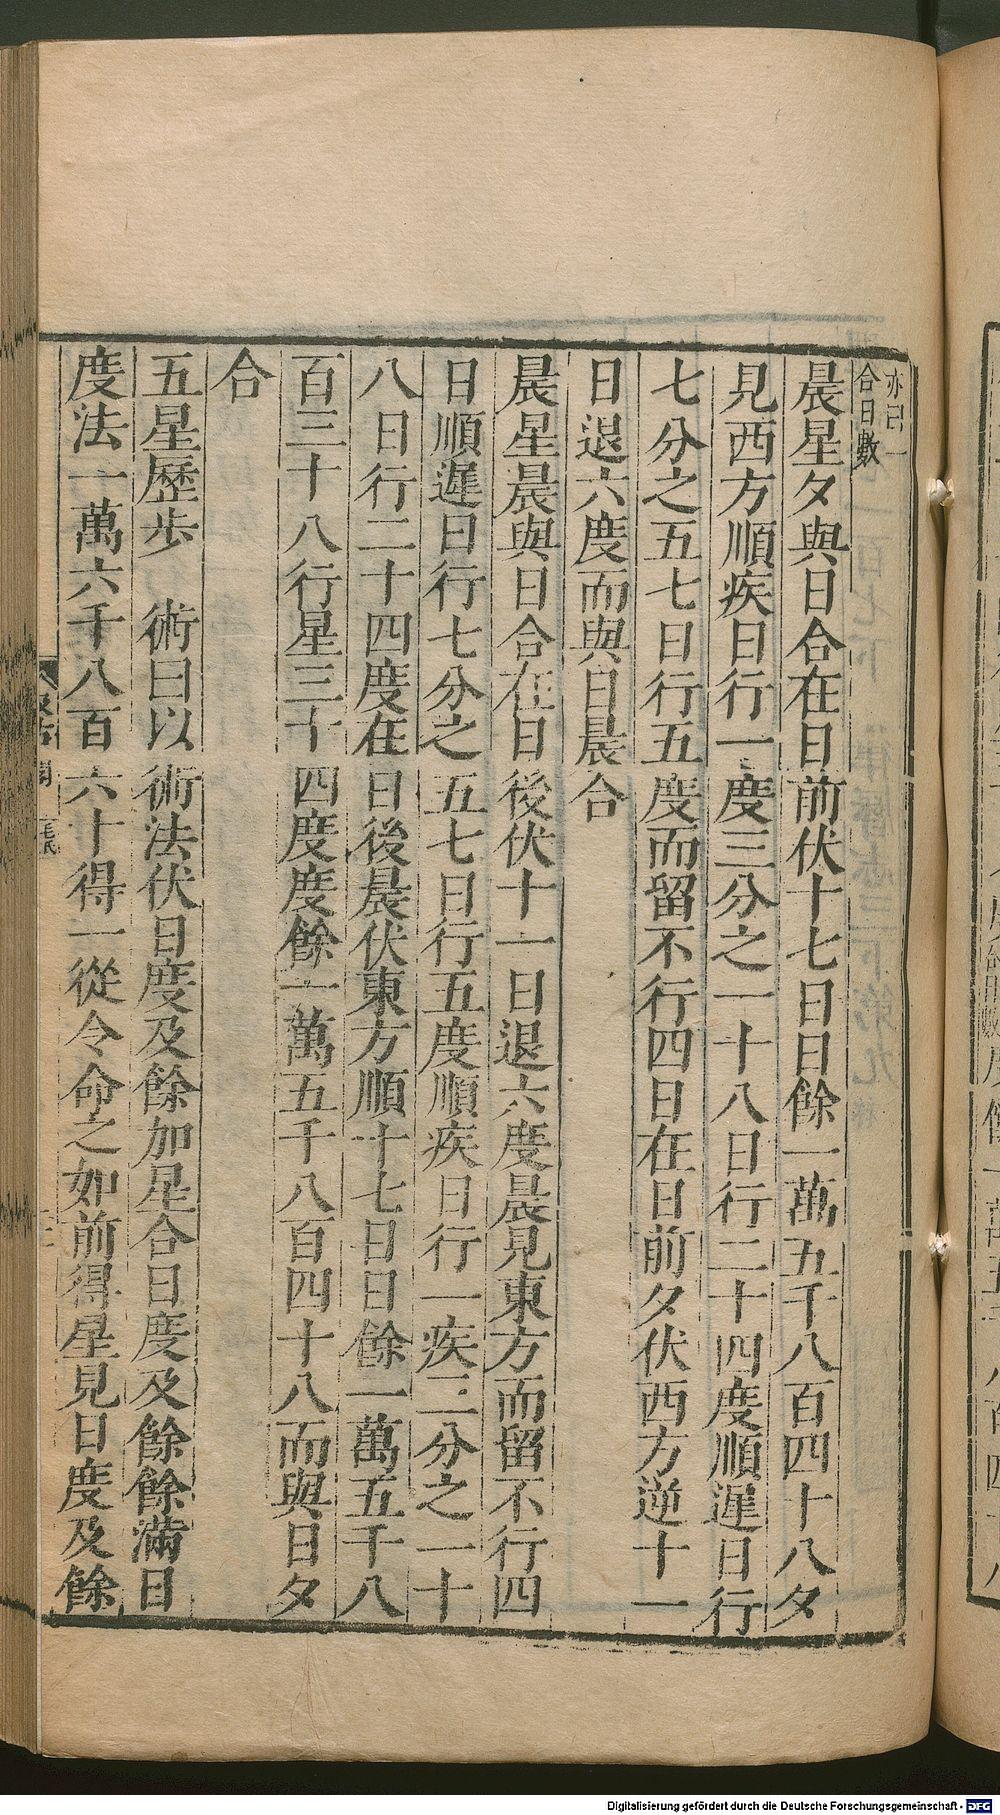 亦曰一
合日數
晨星夕與日合在日前伏十七日日餘一萬五千八百四十八夕
見西方順疾日行一度三分之一十八日行二十四度順遲日行
七分之五七日行五度而留不行四日在日前夕伏西方逆十一
日退六度而與日晨合
晨星晨與日合在日後伏十一日退六度晨見東方而留不行四
日順遲日行七分之五七日行五度順疾日行一疾三分之一十
八日行二十四度在日後晨伏東方順十七日日餘一萬五千八
百三十八行星三十四度度餘一萬五千八百四十八而與日夕
合
五星歷步 術曰以術法伏日度及餘加星合日度及餘餘滿日
度法一萬六千八百六十得一從令命之如前得星見日度及餘
汲古閣
毛氏
Digitalisierung gefördert durch die Deutsche Forschungsgemeinschaft - DFG